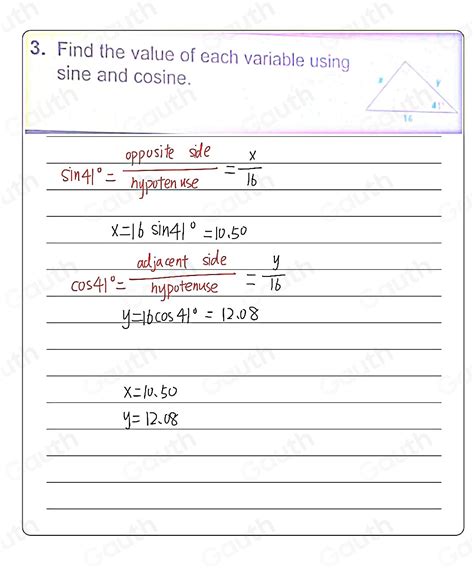 3. Find the value of each variable using
sine and cosine.
x
y
41°
16
sin41° = opposite side / hypotenuse = x / 16
x=16 sin41° =10.50
cos41° = adjacent side / hypotenuse = y / 16
y=16cos41° = 12.08
x=10.50
y=12.08
Gauth